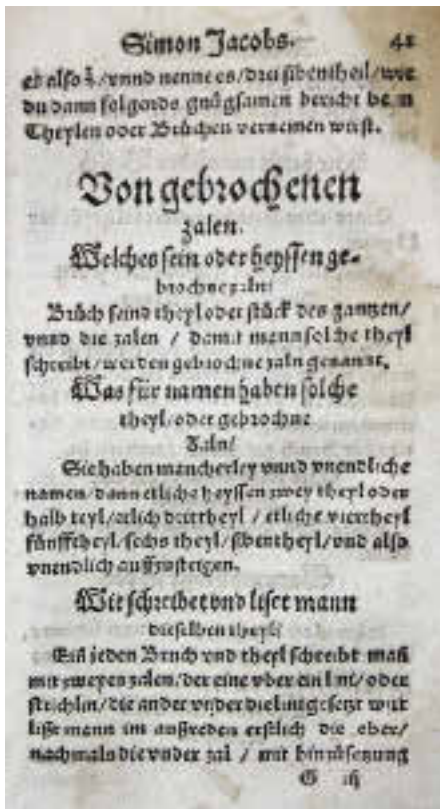 Simon Jacobs. 42
es also 3/7/vnnd nenne es/drei sibentheil/wie
du dann folgends gnůgsamen bericht beim
Theylen oder Brüchen vernemen wirst.
Von gebrochenen
zalen.
Welches sein oder heyssen ge-
brochne zaln?
Brüch seind theyl oder stück des gantzen/
vnnd die zalen / damit mann solche theyl
schreibt/werden gebrochne zaln genannt.
Was für namen haben solche
theyl/oder gebrochne
Zaln?
Sie haben mancherley vnnd vnendliche
namen/dann etliche heyssen zwey theyl oder
halb teyl/etlich drittheyl / etliche viertheyl
fünfftheyl/sechs theyl/sibentheyl/vnd also
vnendlich auffzusteigen.
Wie schreibet vnd liset mann
dieselben theyl?
Ein jeden Bruch vnd theyl schreibt mañ
mit zweyen zalen/der eine vber ein lini/oder
strichlin/die ander vnder die lini gesetzt wirt
lißt mann im außreden erstlich die ober/
nachmals die vnder zal / mit hinzůsetzung
G iij